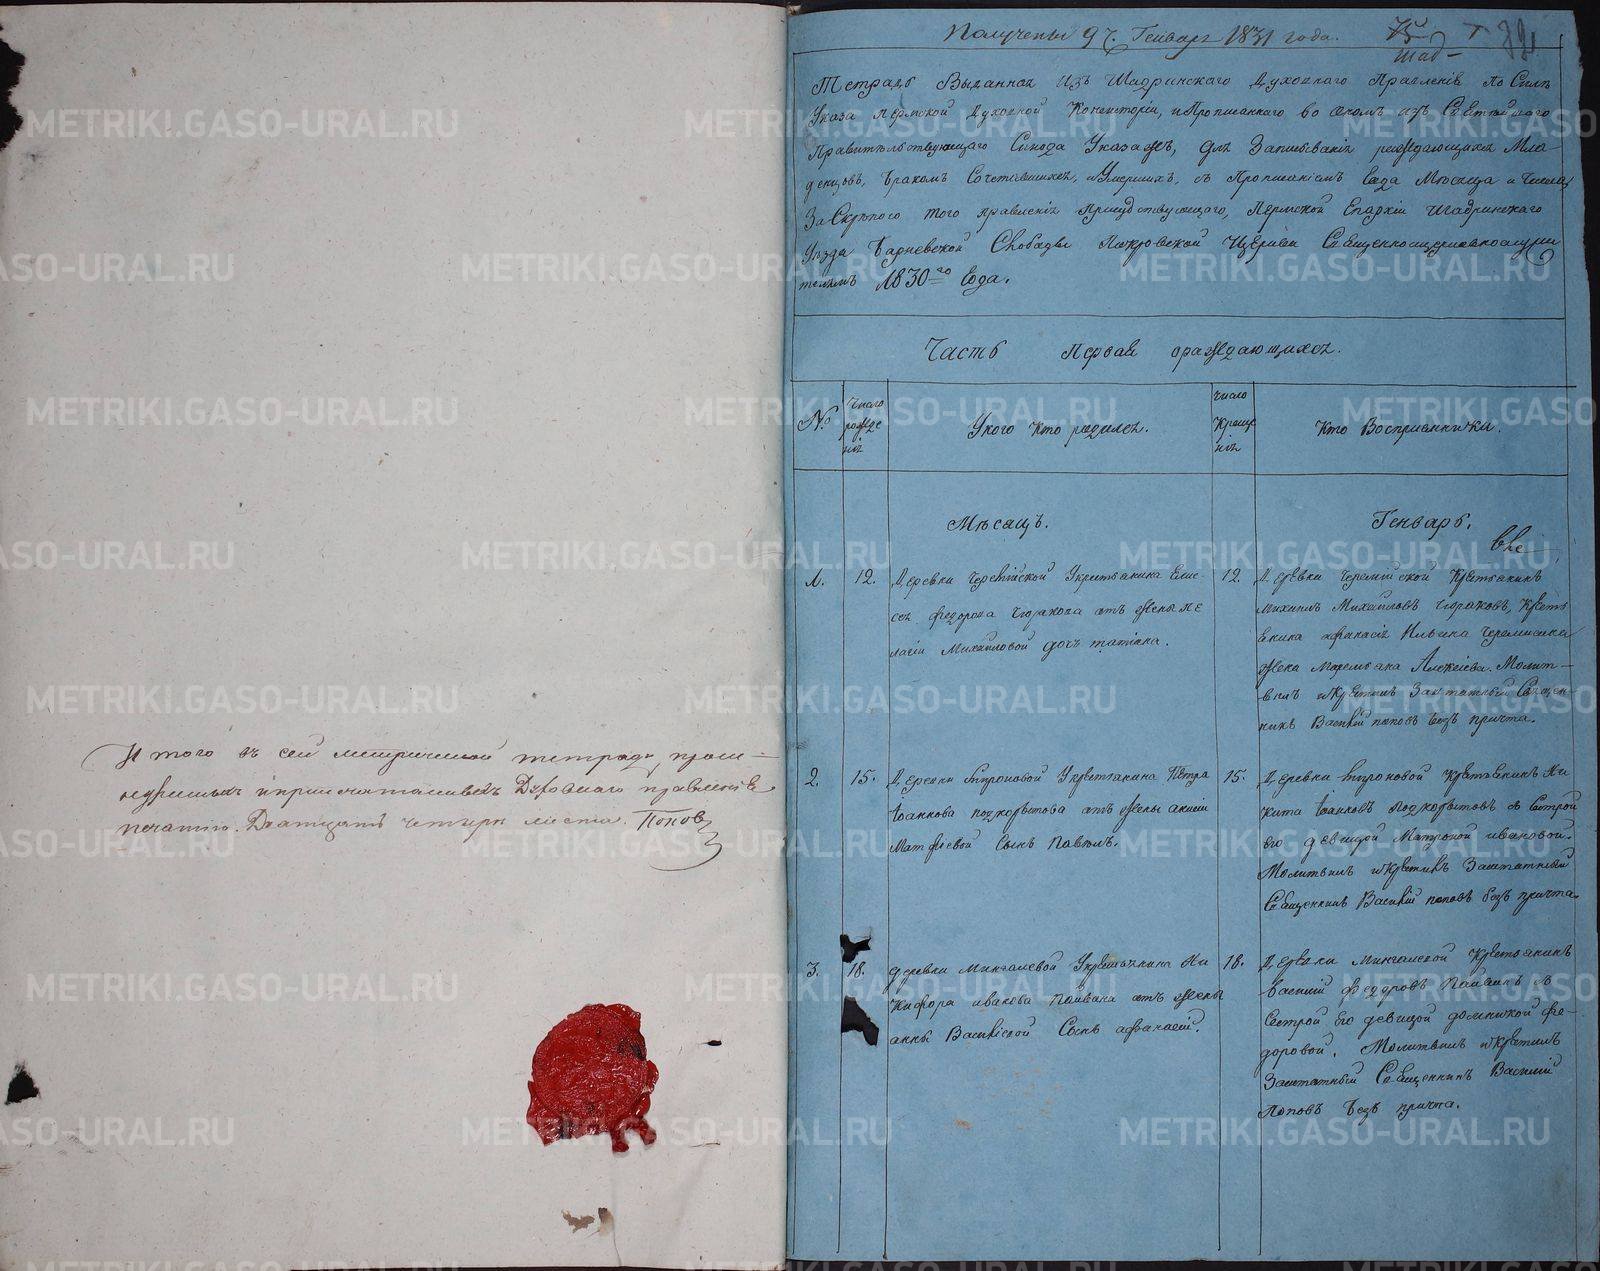 Итого въ сей метрической тетради, прош-
нурныхъ и припечатанныхъ Духовнаго правленія
печатью. Двадцать четыре листа. Поповъ
Получены 9 ч. Генваря 1831 года.
Тетрадь Выданная Изъ Шадринскаго Духовнаго Правленія По Силѣ
Указа Пермской Духовной Консисторіи, и Прописаннаго во ономъ изъ Святѣйшаго
Правительствующаго Синода Указахъ, для Записыванія раждающихся Мла-
денцовъ, Бракомъ Сочетавшихся, и Умершихъ, съ Прописаніемъ Года Мѣсяца и Числа,
За Скрѣпою того правленія Присудствующаго, Пермской Епархіи Шадринскаго
Уѣзда Барневской Слободы Покровской Церкви Священноцерковнослужи
телямъ 1830го Года.
Часть Первая ораждающихся.
№.
Число
рожде
нія
Укого Кто родился.
число
Креще
нія
Кто Воспріемники.
Мѣсяцъ.
Генварь.
1.
12.
Деревни Черемійской Укрестьянина Елис-
ея Федорова Чюракова отъ жены Пе
лагіи Михайловой дочь татіана.
12.
Деревни Черемійской Крестьянинъ
Михаилъ Михайловъ Чюраковъ, Крест
янина Афанасія Ильина Черемисина
жена Маремьяна Алексіева. Молит-
вилъ и Крестилъ Заштатный Священ-
никъ Василій поповъ безъ причта.
2.
15.
Деревни Спроновой Укрестьянина Петра
Іоаннова подкорытова отъ жены акилины
Матфіевой Сынъ Павелъ.
15.
Деревни Спроновой Крестьянинъ Ни
кита Іоанновъ Подкорытовъ съ Сестрой
его девицой Матроной ивановой.
Молитвилъ и Крестилъ Заштатный
Священникъ Василій поповъ безъ причта.
3.
18.
деревни Мингалевой Укрестьянина Ни
кифора иванова Паивина отъ жены
анны Василіевой Сынъ афанасій.
18.
Деревни Мингалевой Крестьянинъ
Василій федоровъ Паивинъ съ
Сестрой Его девицой домникой фе-
доровой. Молитвилъ и Крестилъ
Заштатный Священникъ Василій
поповъ безъ причта.
METRIKI.GASO-URAL.RU